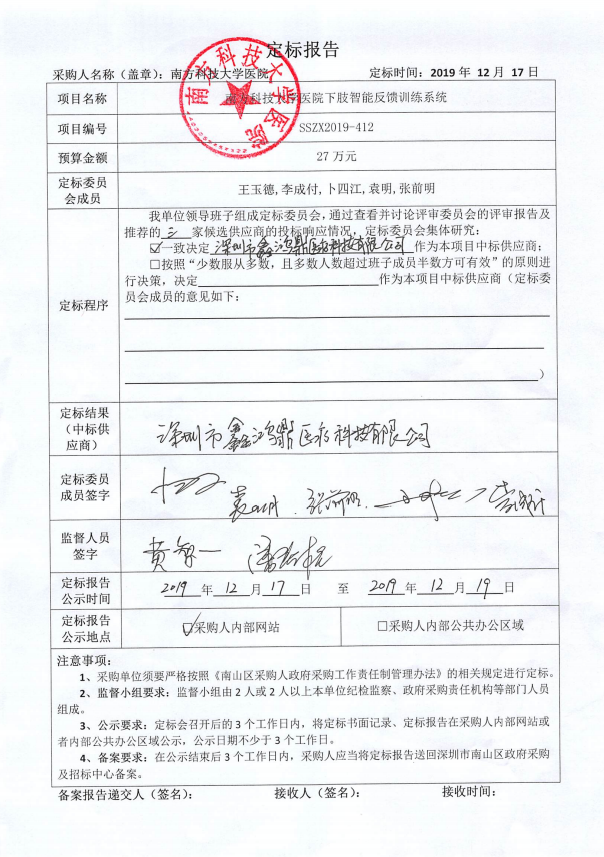 定标报告
采购人名称（盖章）：南方科技大学医院 定标时间：2019 年 12 月 17 日
南方科技大学医院
项目名称 南方科技大学医院下肢智能反馈训练系统
项目编号 SSZX2019-412
预算金额 27 万元
定标委员会成员 王玉德,李成付,卜四江,袁明,张前明
定标程序
我单位领导班子组成定标委员会，通过查看并讨论评审委员会的评审报告及
推荐的 三 家候选供应商的投标响应情况，定标委员会集体研究：
☑一致决定 深圳市鑫鸿鼎医疗科技有限公司 作为本项目中标供应商；
□按照“少数服从多数，且多数人数超过班子成员半数方可有效”的原则进
行决策，决定 作为本项目中标供应商（定标委
员会成员的意见如下：
）
定标结果
（中标供
应商）
深圳市鑫鸿鼎医疗科技有限公司
定标委员
成员签字
袁明 张前明
监督人员
签字
黄智一
定标报告
公示时间
2019 年 12 月 17 日 至 2019 年 12 月 19 日
定标报告
公示地点
☑采购人内部网站 □采购人内部公共办公区域
注意事项：
1、采购单位须要严格按照《南山区采购人政府采购工作责任制管理办法》的相关规定进行定标。
2、监督小组要求：监督小组由 2 人或 2 人以上本单位纪检监察、政府采购责任机构等部门人员
组成。
3、公示要求：定标会召开后的 3 个工作日内，将定标书面记录、定标报告在采购人内部网站或
者内部公共办公区域公示，公示日期不少于 3 个工作日。
4、备案要求：在公示结束后 3 个工作日内，采购人应当将定标报告送回深圳市南山区政府采购
及招标中心备案。
备案报告递交人（签名）： 接收人（签名）： 接收时间：